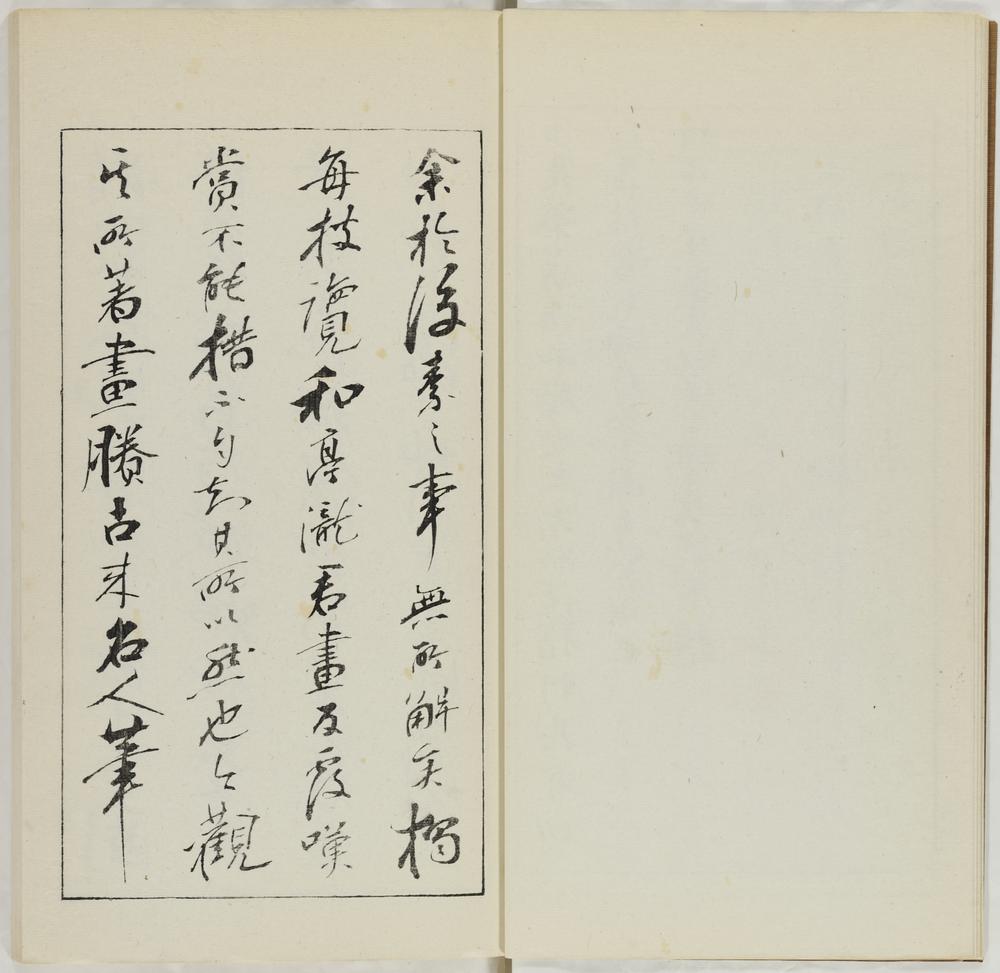 余於後素之事無所解矣獨
每披覽和亭瀧君畫反覆嘆
賞不能措不自知其所以然也今觀
其所著畫賸古来名人筆